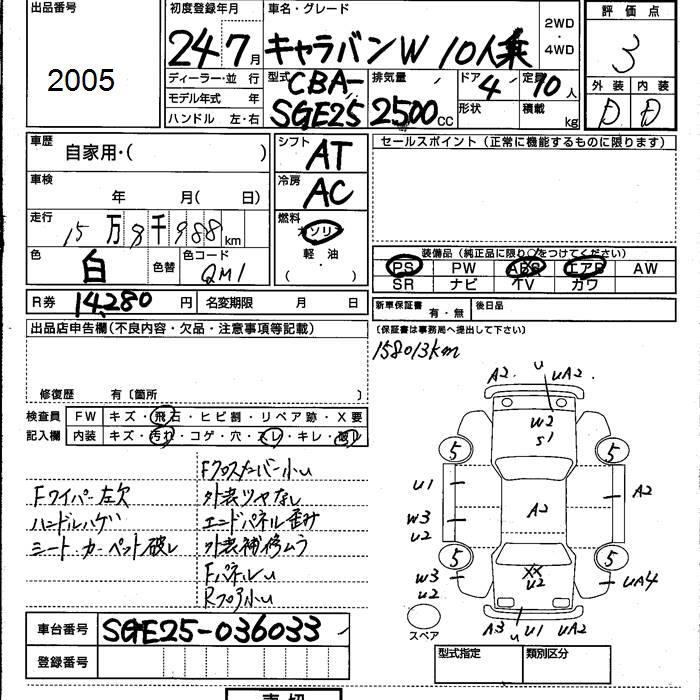 出品番号
2005
初度登録年月
24 7月
車名・グレード
キャラバンW 10人乗
2WD
・
4WD
評価点
3
外装 内装
D D
ディーラー・並行
モデル年式 年
ハンドル 左・右
型式 CBA-
SGE25
排気量
2500cc
ドア 4
形状
定員 10人
積載 kg
車歴
自家用・( )
車検
年 月( 日)
走行
15万8千988km
色
白
色替
色コード
QM1
シフト
AT
冷房
AC
燃料
ガソリン
軽・油
( ・ )
セールスポイント(正常に機能するものに限ります)
装備品(純正品に限り○をつけてください)
PS PW ABS エアB AW
SR ナビ TV カワ
R券 14,280円 名変期限 月 日
新車保証書 有・無 後日品
出品店申告欄(不良内容・欠品・注意事項等記載)
(保証書は事務局へ提出して下さい)
158013km
修復歴 有〔箇所 〕
検査員
記入欄
FW キズ・飛石・ヒビ割・リペア跡・X要
内装 キズ・汚れ・コゲ・穴・スレ・キレ・破レ
Fクロスメンバー小u
Fワイパー左欠
外装ツヤなし
ハンドルハゲ
エンドパネル歪み
シート、カーペット破レ
外装補修ムラ
Fパネルu
Rフロア小u
A2 u uA2
W2
S1
5 5
u1
A2
A2
W3
u2
5 5
W3
u2
XX
u2
uA4
A3 u u1 uA2
スペア
車台番号 SGE25-036033
登録番号
型式指定 類別区分